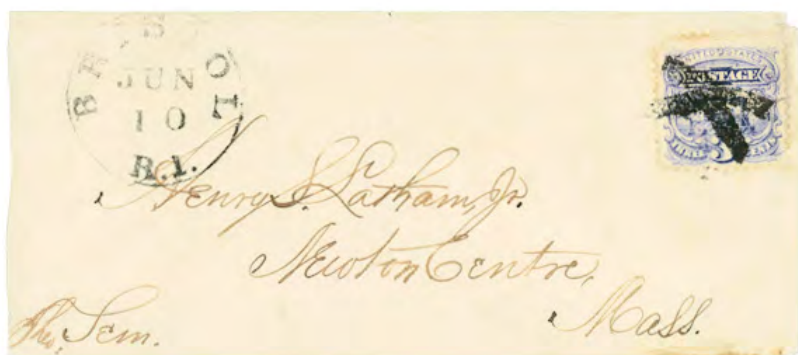 BRISTOL
JUN
10
R.I.
UNITED STATES
POSTAGE
Henry S. Latham, Jr.
Newton Centre,
Mass.
Theo. Sem.